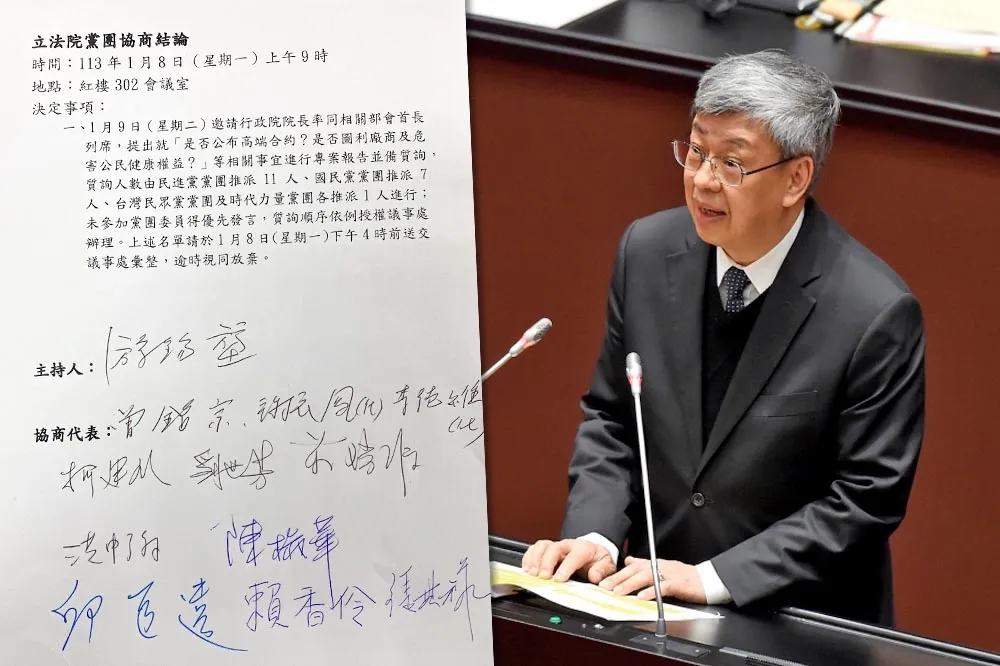 立法院黨團協商結論
時間：113年1月8日（星期一）上午9時
地點：紅樓302會議室
決定事項：
一、1月9日（星期二）邀請行政院院長率同相關部會首長
列席，提出就「是否公布高端合約？是否圖利廠商及危
害公民健康權益？」等相關事宜進行專案報告並備質詢，
質詢人數由民進黨黨團推派11人、國民黨黨團推派7
人、台灣民眾黨黨團及時代力量黨團各推派1人進行；
未參加黨團委員得優先發言，質詢順序依例授權議事處
辦理。上述名單請於1月8日(星期一)下午4時前送交
議事處彙整，逾時視同放棄。
主持人：游錫堃
協商代表：曾銘宗、
柯建 劉世芳
陳椒華
邱臣遠 賴香伶 張其祿